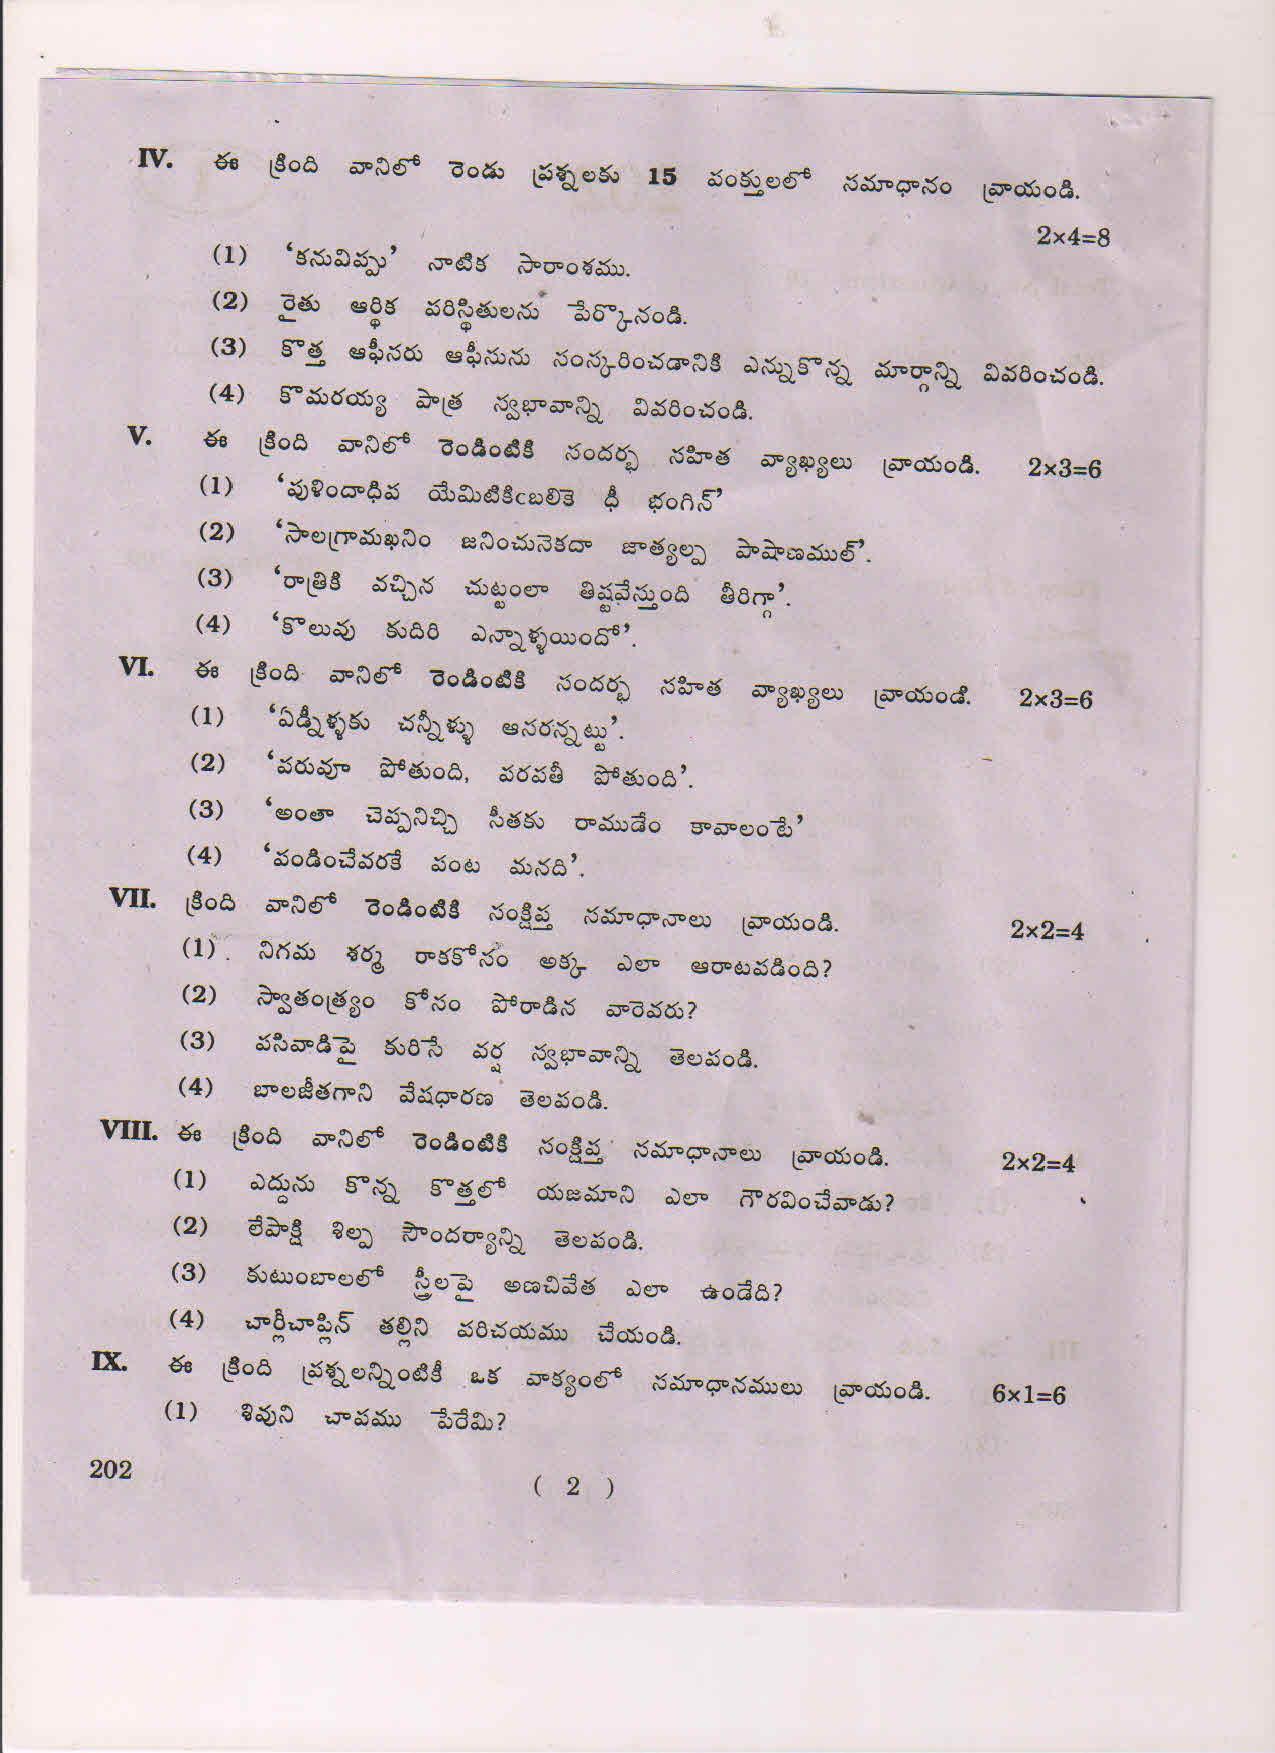 IV. ఈ క్రింది వానిలో రెండు ప్రశ్నలకు 15 పంక్తులలో సమాధానం వ్రాయండి.
2×4=8
(1) ‘కనువిప్పు’ నాటిక సారాంశము.
(2) రైతు ఆర్థిక పరిస్థితులను పేర్కొనండి.
(3) కొత్త ఆఫీసరు ఆఫీసును సంస్కరించడానికి ఎన్నుకొన్న మార్గాన్ని వివరించండి.
(4) కొమరయ్య పాత్ర స్వభావాన్ని వివరించండి.
V. ఈ క్రింది వానిలో రెండింటికి సందర్భ సహిత వ్యాఖ్యలు వ్రాయండి. 2×3=6
(1) ‘పుళిందాధిప యేమిటికిఁబలికె ధీ భంగిన్’
(2) ‘సాలగ్రామఖనిం జనించునెకదా జాత్యల్ప పాషాణముల్’.
(3) ‘రాత్రికి వచ్చిన చుట్టంలా తిష్టవేస్తుంది తీరిగ్గా’.
(4) ‘కొలువు కుదిరి ఎన్నాళ్ళయిందో’.
VI. ఈ క్రింది వానిలో రెండింటికి సందర్భ సహిత వ్యాఖ్యలు వ్రాయండి. 2×3=6
(1) ‘ఏడ్నీళ్ళకు చన్నీళ్ళు ఆసరన్నట్టు’.
(2) ‘పరువూ పోతుంది, పరపతీ పోతుంది’.
(3) ‘అంతా చెప్పనిచ్చి సీతకు రాముడేం కావాలంటే’
(4) ‘పండించేవరకే పంట మనది’.
VII. క్రింది వానిలో రెండింటికి సంక్షిప్త సమాధానాలు వ్రాయండి. 2×2=4
(1) నిగమ శర్మ రాకకోసం అక్క ఎలా ఆరాటపడింది?
(2) స్వాతంత్ర్యం కోసం పోరాడిన వారెవరు?
(3) పసివాడిపై కురిసే వర్ష స్వభావాన్ని తెలపండి.
(4) బాలజీతగాని వేషధారణ తెలపండి.
VIII. ఈ క్రింది వానిలో రెండింటికి సంక్షిప్త సమాధానాలు వ్రాయండి. 2×2=4
(1) ఎద్దును కొన్న కొత్తలో యజమాని ఎలా గౌరవించేవాడు?
(2) లేపాక్షి శిల్ప సౌందర్యాన్ని తెలపండి.
(3) కుటుంబాలలో స్త్రీలపై అణచివేత ఎలా ఉండేది?
(4) చార్లీచాప్లిన్ తల్లిని పరిచయము చేయండి.
IX. ఈ క్రింది ప్రశ్నలన్నింటికీ ఒక వాక్యంలో సమాధానములు వ్రాయండి. 6×1=6
(1) శివుని చాపము పేరేమి?
202
( 2 )